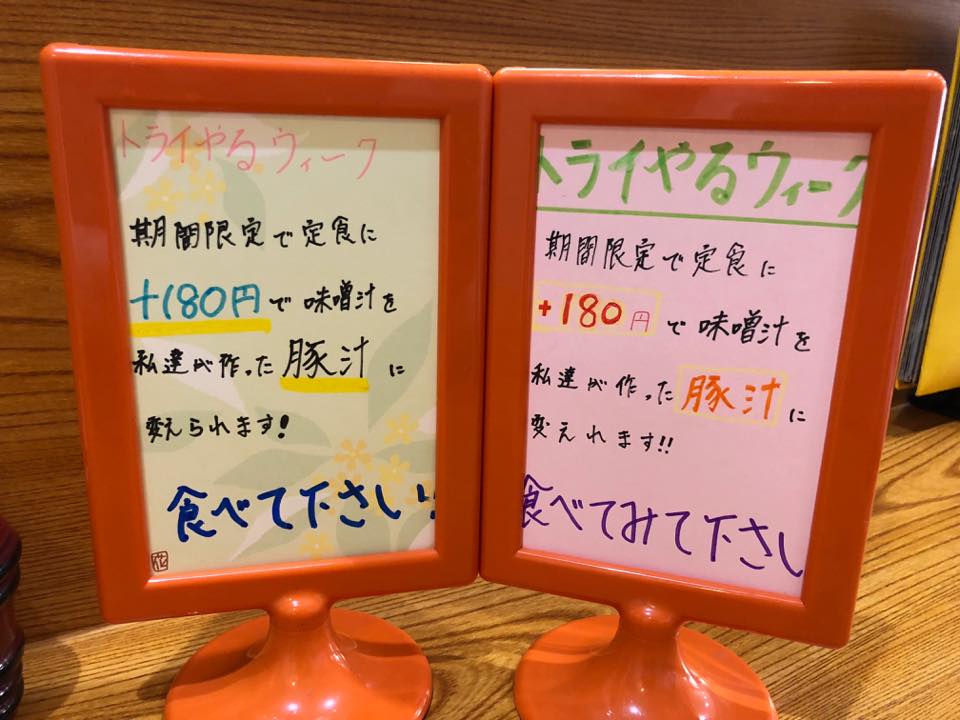 トライやるウィーク
期間限定で定食に
+180円で味噌汁を
私達が作った豚汁に
変えられます!
食べて下さい!
トライやるウィーク
期間限定で定食に
+180円で味噌汁を
私達が作った豚汁に
変えれます!!
食べてみて下さい